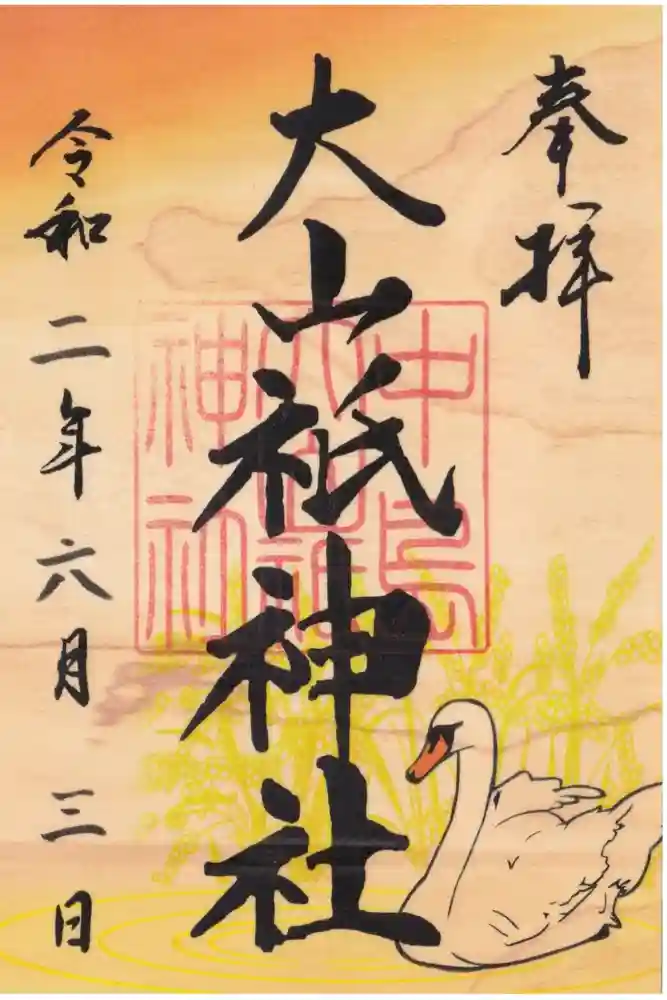 奉拝
大山祇神社
中島
大山祇
神社
令和二年六月三日